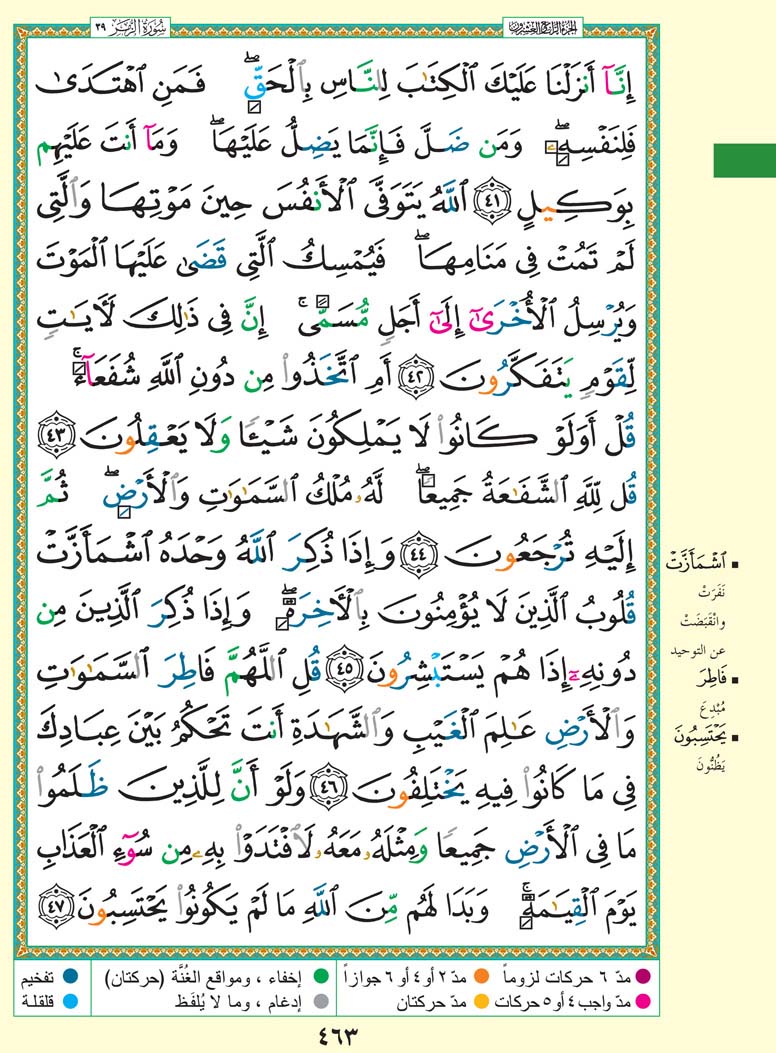 سُورَةُ الزُّمَر ٣٩
الجزء الرابع والعشرون
إِنَّآ أَنزَلْنَا عَلَيْكَ ٱلْكِتَٰبَ لِلنَّاسِ بِٱلْحَقِّ ۖ فَمَنِ ٱهْتَدَىٰ
فَلِنَفْسِهِۦ ۖ وَمَن ضَلَّ فَإِنَّمَا يَضِلُّ عَلَيْهَا ۖ وَمَآ أَنتَ عَلَيْهِم
بِوَكِيلٍ ٤١ ٱللَّهُ يَتَوَفَّى ٱلْأَنفُسَ حِينَ مَوْتِهَا وَٱلَّتِى
لَمْ تَمُتْ فِى مَنَامِهَا ۖ فَيُمْسِكُ ٱلَّتِى قَضَىٰ عَلَيْهَا ٱلْمَوْتَ
وَيُرْسِلُ ٱلْأُخْرَىٰٓ إِلَىٰٓ أَجَلٍ مُّسَمًّى ۚ إِنَّ فِى ذَٰلِكَ لَـَٔايَٰتٍ
لِّقَوْمٍ يَتَفَكَّرُونَ ٤٢ أَمِ ٱتَّخَذُوا۟ مِن دُونِ ٱللَّهِ شُفَعَآءَ ۚ
قُلْ أَوَلَوْ كَانُوا۟ لَا يَمْلِكُونَ شَيْـًٔا وَلَا يَعْقِلُونَ ٤٣
قُل لِّلَّهِ ٱلشَّفَٰعَةُ جَمِيعًا ۖ لَّهُۥ مُلْكُ ٱلسَّمَٰوَٰتِ وَٱلْأَرْضِ ۖ ثُمَّ
إِلَيْهِ تُرْجَعُونَ ٤٤ وَإِذَا ذُكِرَ ٱللَّهُ وَحْدَهُ ٱشْمَأَزَّتْ
قُلُوبُ ٱلَّذِينَ لَا يُؤْمِنُونَ بِٱلْـَٔاخِرَةِ ۖ وَإِذَا ذُكِرَ ٱلَّذِينَ مِن
دُونِهِۦٓ إِذَا هُمْ يَسْتَبْشِرُونَ ٤٥ قُلِ ٱللَّهُمَّ فَاطِرَ ٱلسَّمَٰوَٰتِ
وَٱلْأَرْضِ عَٰلِمَ ٱلْغَيْبِ وَٱلشَّهَٰدَةِ أَنتَ تَحْكُمُ بَيْنَ عِبَادِكَ
فِى مَا كَانُوا۟ فِيهِ يَخْتَلِفُونَ ٤٦ وَلَوْ أَنَّ لِلَّذِينَ ظَلَمُوا۟
مَا فِى ٱلْأَرْضِ جَمِيعًا وَمِثْلَهُۥ مَعَهُۥ لَٱفْتَدَوْا۟ بِهِۦ مِن سُوٓءِ ٱلْعَذَابِ
يَوْمَ ٱلْقِيَٰمَةِ ۚ وَبَدَا لَهُم مِّنَ ٱللَّهِ مَا لَمْ يَكُونُوا۟ يَحْتَسِبُونَ ٤٧
▪ ٱشْمَأَزَّتْ
نَفَرَتْ
وانْقَبَضَتْ
عن التوحيد
▪ فَاطِرَ
مُبْدِعَ
▪ يَحْتَسِبُونَ
يَظُنُّونَ
● مدّ ٦ حركات لزوماً ● مدّ ٢ أو ٤ أو ٦ جوازاً
● مدّ واجب ٤ أو ٥ حركات ● مدّ حركتان
● إخفاء ، ومواقع الغُنَّة (حركتان) ● تفخيم
● إدغام ، وما لا يُلفَظ ● قلقلة
٤٦٣